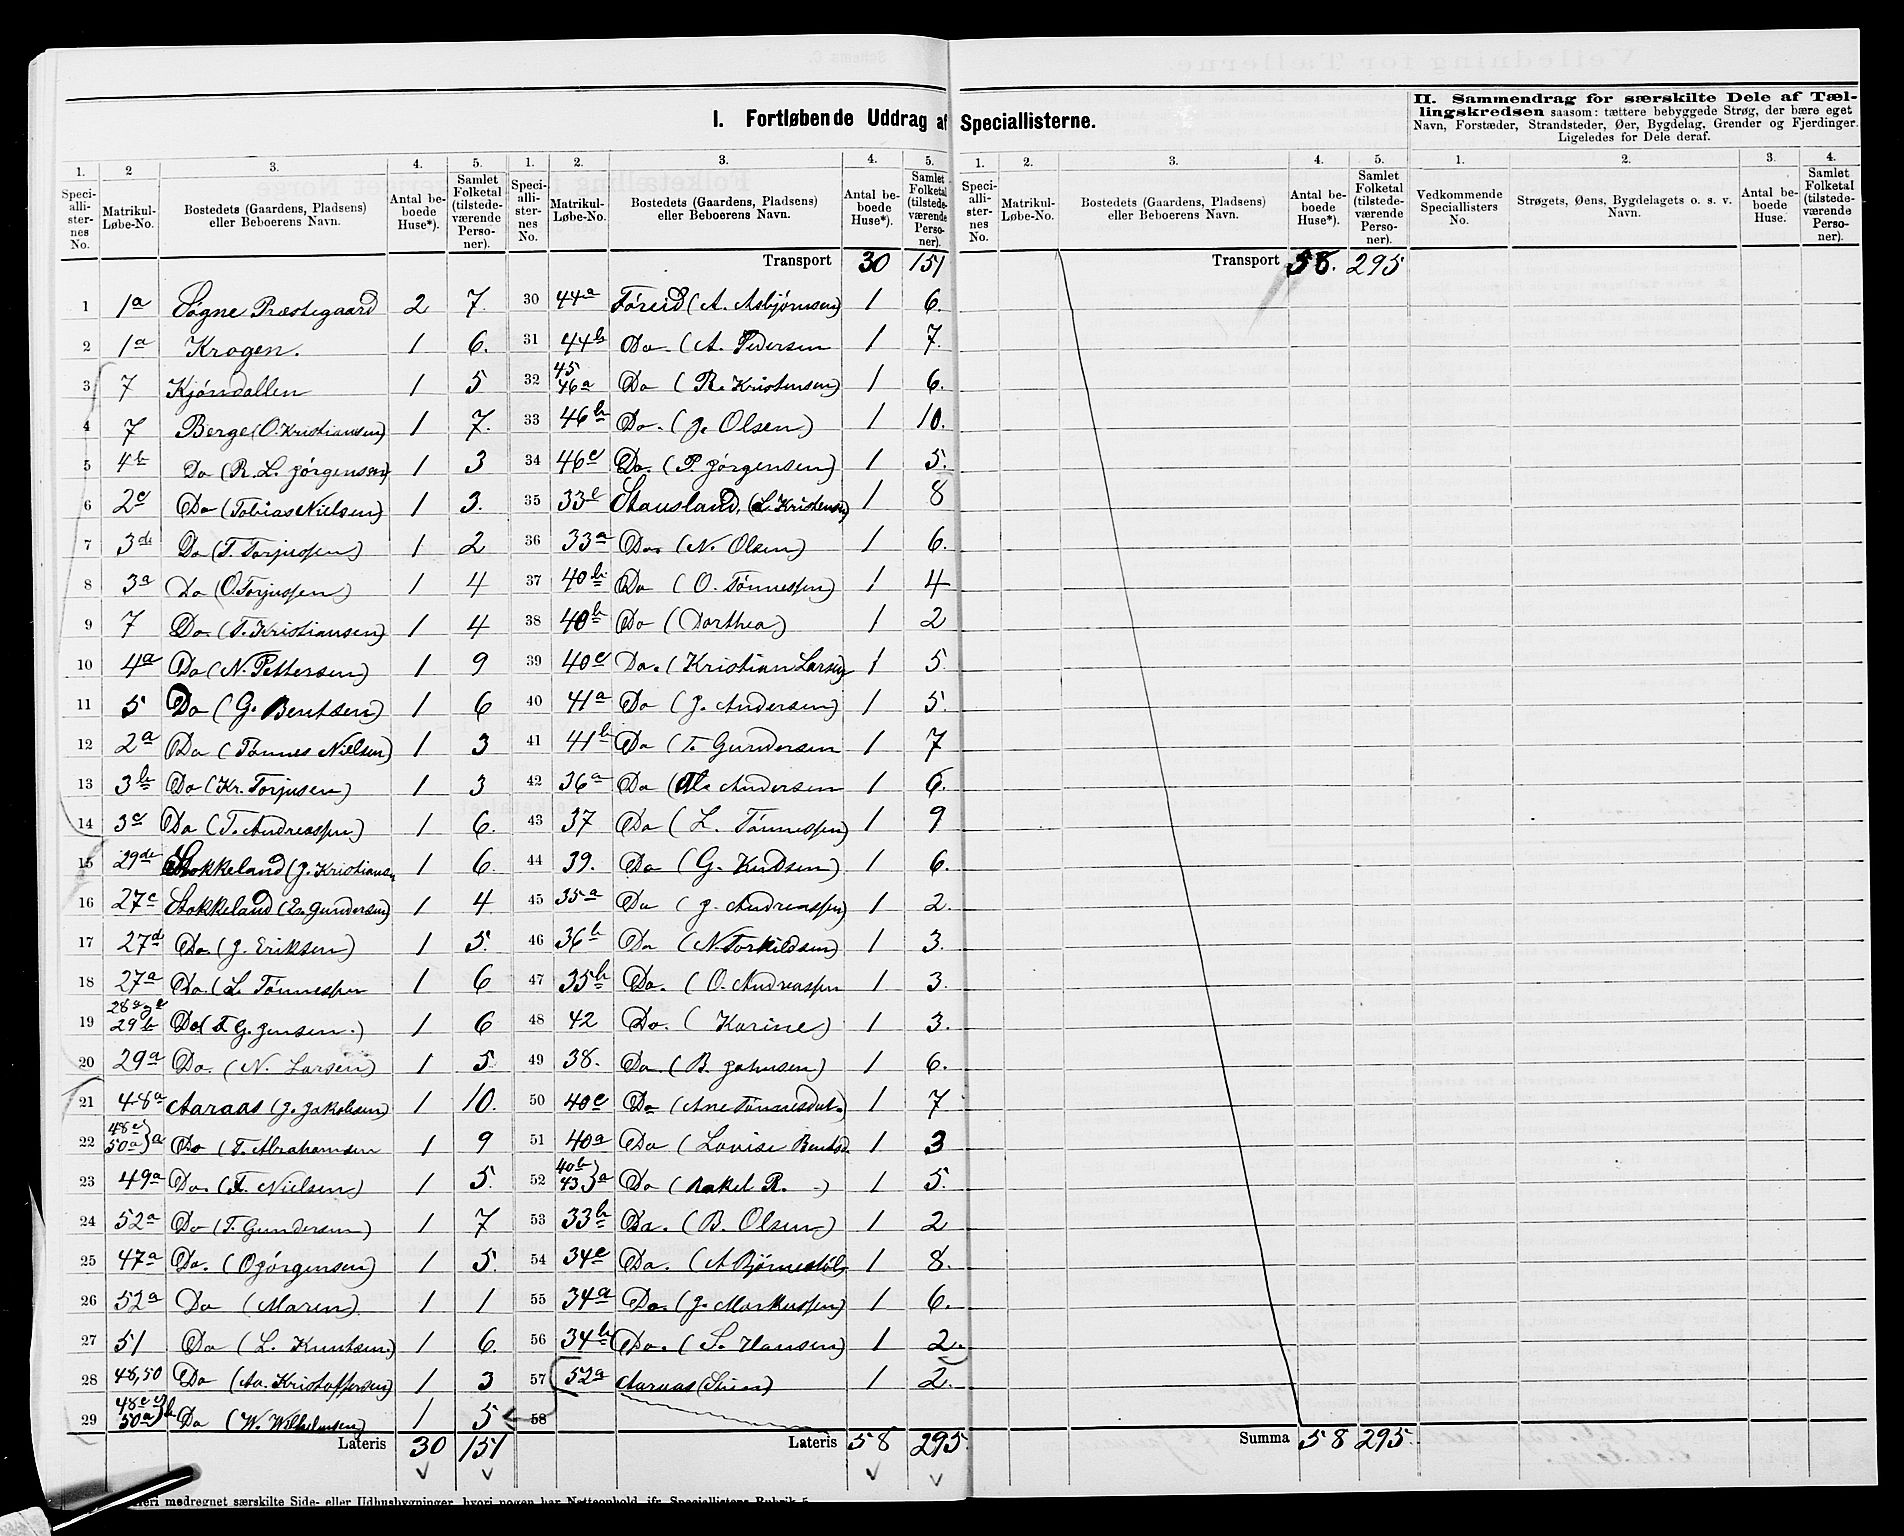 I. Fortløbende Uddrag af Speciallisterne.
II. Sammendrag for særskilte Dele af Tæl-
lingskredsen saasom: tættere bebyggede Strøg, der bære eget
Navn, Forstæder, Strandsteder, Øer, Bygdelag, Grender og Fjerdinger.
Ligeledes for Dele deraf.
1. 2 3. 4. 5. 1. 2. 3. 4. 5. 1. 2. 3. 4. 5. 1. 2. 3. 4.
Speciallisternes No. Matrikul-Løbe-No. Bostedets (Gaardens, Pladsens) eller Beboerens Navn. Antal beboede Huse*). Samlet Folketal (tilstedeværende Personer).
Speciallisternes No. Matrikul-Løbe-No. Bostedets (Gaardens, Pladsens) eller Beboerens Navn. Antal beboede Huse*). Samlet Folketal (tilstedeværende Personer).
Speciallisternes No. Matrikul-Løbe-No. Bostedets (Gaardens, Pladsens) eller Beboerens Navn. Antal beboede Huse*). Samlet Folketal (tilstedeværende Personer).
Vedkommende Speciallisters No. Strøgets, Øens, Bygdelagets o. s. v. Navn. Antal beboede Huse. Samlet Folketal (tilstedeværende Personer).
1 1a Søgne Præstegaard 2 7.
2 1a Krogen. 1 6.
3 7 Kjøndallen 1 5
4 7 Berge (O. Kristiansen) 1 7.
5 4b Do (R. L. Jørgensen) 1 3
6 2c Do (Tobias Nielsen) 1 3.
7 3d Do (T. Torjussen) 1 2
8 3a Do (O. Torjussen) 1 4
9 7 Do. (T. Kristiansen) 1 4
10 4a Do (N. Pettersen) 1 9
11 5 Do (G. Bentsen) 1 6
12 2a Do (Tønnes Nielsen) 1 3
13 3b Do (Kr. Torjusen) 1 3
14 3c Do (T. Andreassen) 1 6.
15 29de Stokkeland (J. Kristiansen 1 6.
16 27c Stokkeland (E. Gundersen) 1 4.
17 27d Do. (J. Eriksen) 1 5.
18 27a Do. (L. Tønnessen 1 6
19 29b Do (T. G. Jensen.) 1 6
20 29a Do. (N. Larsen) 1 5
21 48a Aaraas (J. Jakobsen) 1 10.
22 48c 50a}a Do (T. Abrahamsen 1 9
23 49a Do. (T. Nielsen) 1 5.
24 52a Do (T. Gundersen) 1 7
25 47a Do. (O Jørgensen) 1 5.
26 52a Do (Maren) 1 1
27 51 Do (L. Knutsen.) 1 6.
28 48,50 Do (Aa. Kristoffersen) 1 3
29 50a}b Do (W. Wilhelmsen) 1 5
Lateris 30 151
Transport 30 151
30 44a Føreid (A. Asbjørnsen) 1 6.
31 44b Do. (A. Pedersen 1 7.
32 45 46a Do (R. Kristensen) 1 6.
33 46b Do. (J. Olsen) 1 10.
34 46c Do. (P. Jørgensen) 1 5.
35 33c Stausland, (L. Kristensen) 1 8
36 33a Do. (N. Olsen) 1 6.
37 40b Do (O. Tønnessen) 1 4
38 40b Do (Dorthea) 1 2
39 40c Do. (Kristian Larsen) 1 5
40 41a Do (J. Andersen) 1 5.
41 41b Do (T. Gundersen 1 7
42 36a Do (Andersen 1 6.
43 37 Do (L. Tønnessen) 1 9
44 39. Do (G. Knudsen) 1 6.
45 35a Do (J. Andreassen) 1 2.
46 36b Do (N. Torkildsen) 1 3.
47 35b Do. (O. Andreassen 1 3.
48 42 Do. (Karine) 1 3.
49 38. Do. (B. Johnsen) 1 6.
50 40c Do (Ane Tønnesdat. 1 7
51 40a Do (Lovise Bentsd. 1 3
52 40b 43}a Do (Rakel R. -) 1 5.
53 33b Do. (B. Olsen) 1 2
54 34c Do. (A Bjørnestøl) 1 8.
55 34a Do. (J. Markussen) 1 6.
56 34b Do. (S. Hansen) 1 2.
57 52a Aaraas (Stine) 1 2.
58
Lateris 58 295.
Transport 58. 295
Summa 58 295.